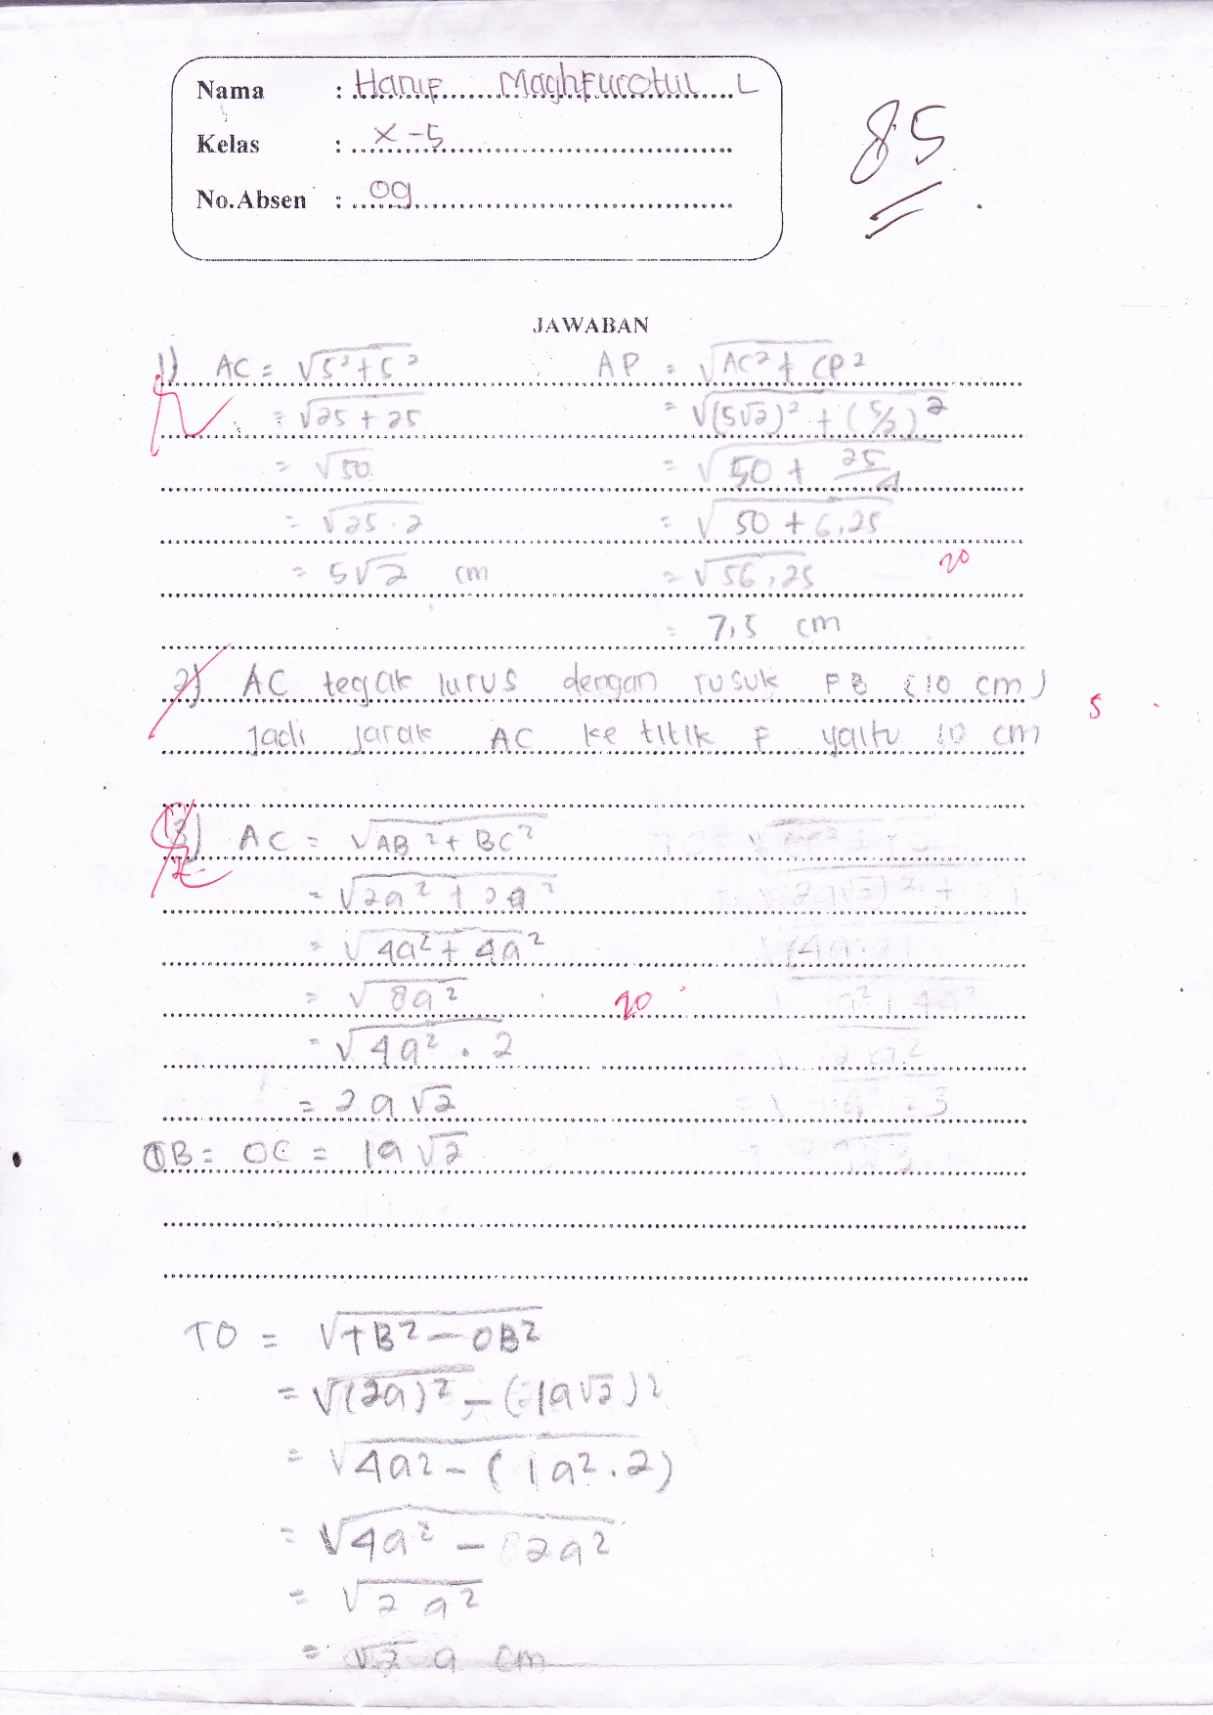 Nama : Hanif Maghfurotul L
Kelas : X-5
No.Absen : 09
85
JAWABAN
1) AC = √5²+5²
= √25 + 25
= √50
= √25 . 2
= 5√2 cm
AP = √AC² + CP²
= √(5√2)² + (5/2)²
= √50 + 25/4
= √50 + 6,25
= √56,25
= 7,5 cm
20
2) AC tegak lurus dengan rusuk FB (10 cm)
Jadi jarak AC ke titik F yaitu 10 cm
5
3) AC = √AB² + BC²
= √2a² + 2a²
= √4a² + 4a²
= √8a²
= √4a² . 2
= 2a√2
20
OB = OC = 1a√2
TO = √TB² - OB²
= √(2a)² - (1a√2)²
= √4a² - (1a².2)
= √4a² - 2a²
= √2a²
= √2 a cm